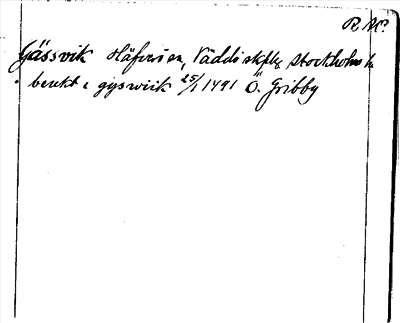 R.A.P.
Gässvik Häfverö sn, Väddö skplg Stockholms l.
benekt i gysswiik 25/1 1491 Ö. Gribby